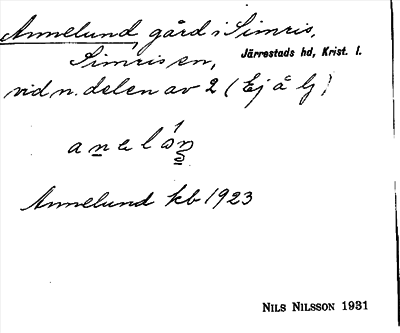 Annelund, gård i Simris,
Simris sn, Järrestads hd, Krist. l.
vid n. delen av 2 (Ej å G)
Annelund kb 1923
NILS NILSSON 1931